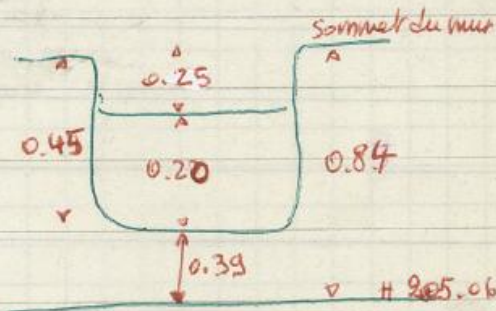 sommet du mur
0.25
0.45
0.20
0.84
0.39
H 205.06